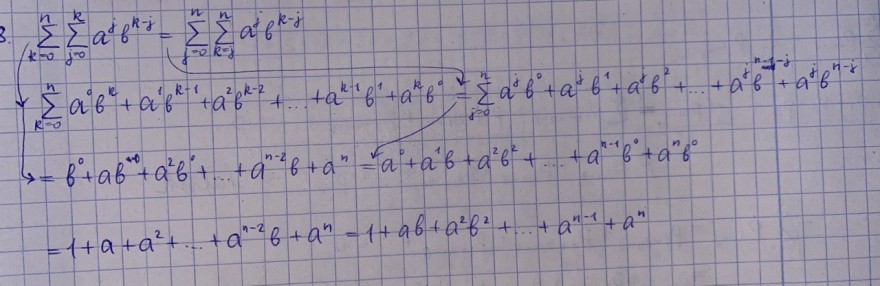 3. ∑_{k=0}^{n} ∑_{j=0}^{k} a^j b^{k-j} = ∑_{j=0}^{n} ∑_{k=j}^{n} a^j b^{k-j}
∑_{k=0}^{n} a^0 b^k + a^1 b^{k-1} + a^2 b^{k-2} + ... + a^{k-1} b^1 + a^k b^0 = ∑_{j=0}^{n} a^j b^0 + a^j b^1 + a^j b^2 + ... + a^j b^{n-1-j} + a^j b^{n-j}
= b^0 + ab^0 + a^2 b^0 + ... + a^{n-2} b + a^n = a^0 + a^1 b + a^2 b^2 + ... + a^{n-1} b^0 + a^n b^0
= 1 + a + a^2 + ... + a^{n-2} b + a^n = 1 + ab + a^2 b^2 + ... + a^{n-1} + a^n